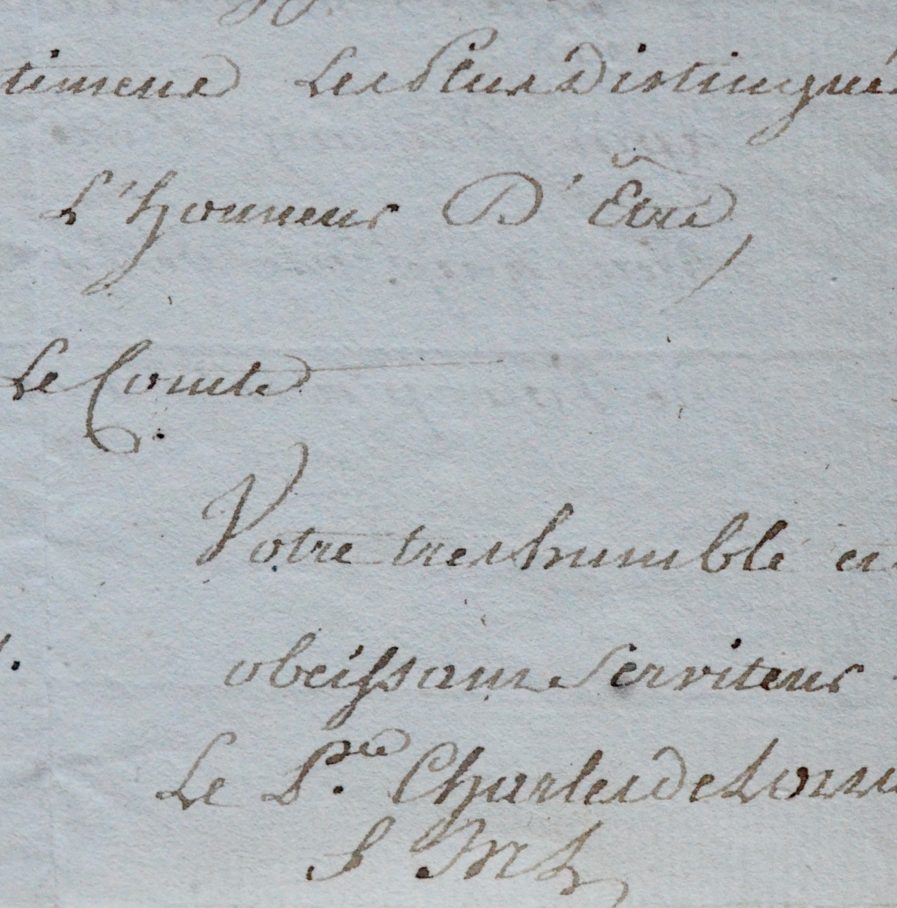 timent Les Plus Distingué
L'honneur D'Être,
Le Comte
Votre tres humble et
obeissant Serviteur
Le P.ce Charles de Lorr